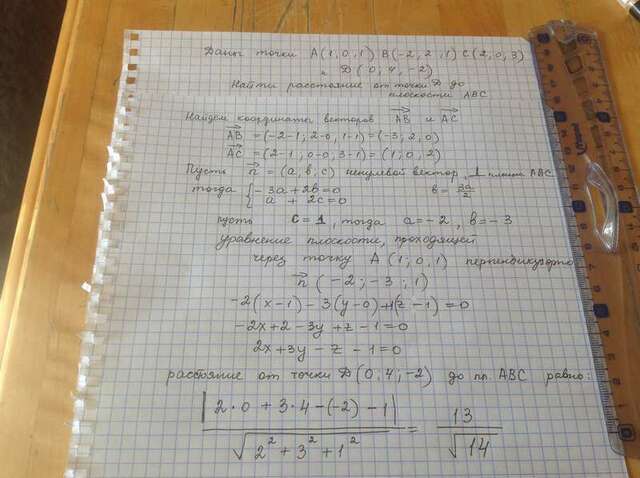 Даны точки A(1,0,1) B(-2,2,1) C(2,0,3)
и D(0;4,-2)
Найти расстояние от точки D до
плоскости ABC
Найдем координаты векторов AB и AC
AB = (-2-1; 2-0, 1-1) = (-3; 2, 0)
AC = (2-1; 0-0, 3-1) = (1; 0; 2)
Пусть n = (a, b; c) ненулевой вектор, ⊥ плоск. ABC
тогда { -3a + 2b = 0 b = 3a/2
a + 2c = 0
пусть c = 1, тогда a = -2, b = -3
уравнение плоскости, проходящей
через точку A(1; 0, 1)
n (-2; -3; 1)
-2(x-1) - 3(y-0) + 1(z-1) = 0
-2x + 2 - 3y + z - 1 = 0
2x + 3y - z - 1 = 0
расстояние от точки D(0; 4; -2) до пл. ABC равно:
|2·0 + 3·4 - (-2) - 1| / √(2² + 3² + 1²) = 13 / √14